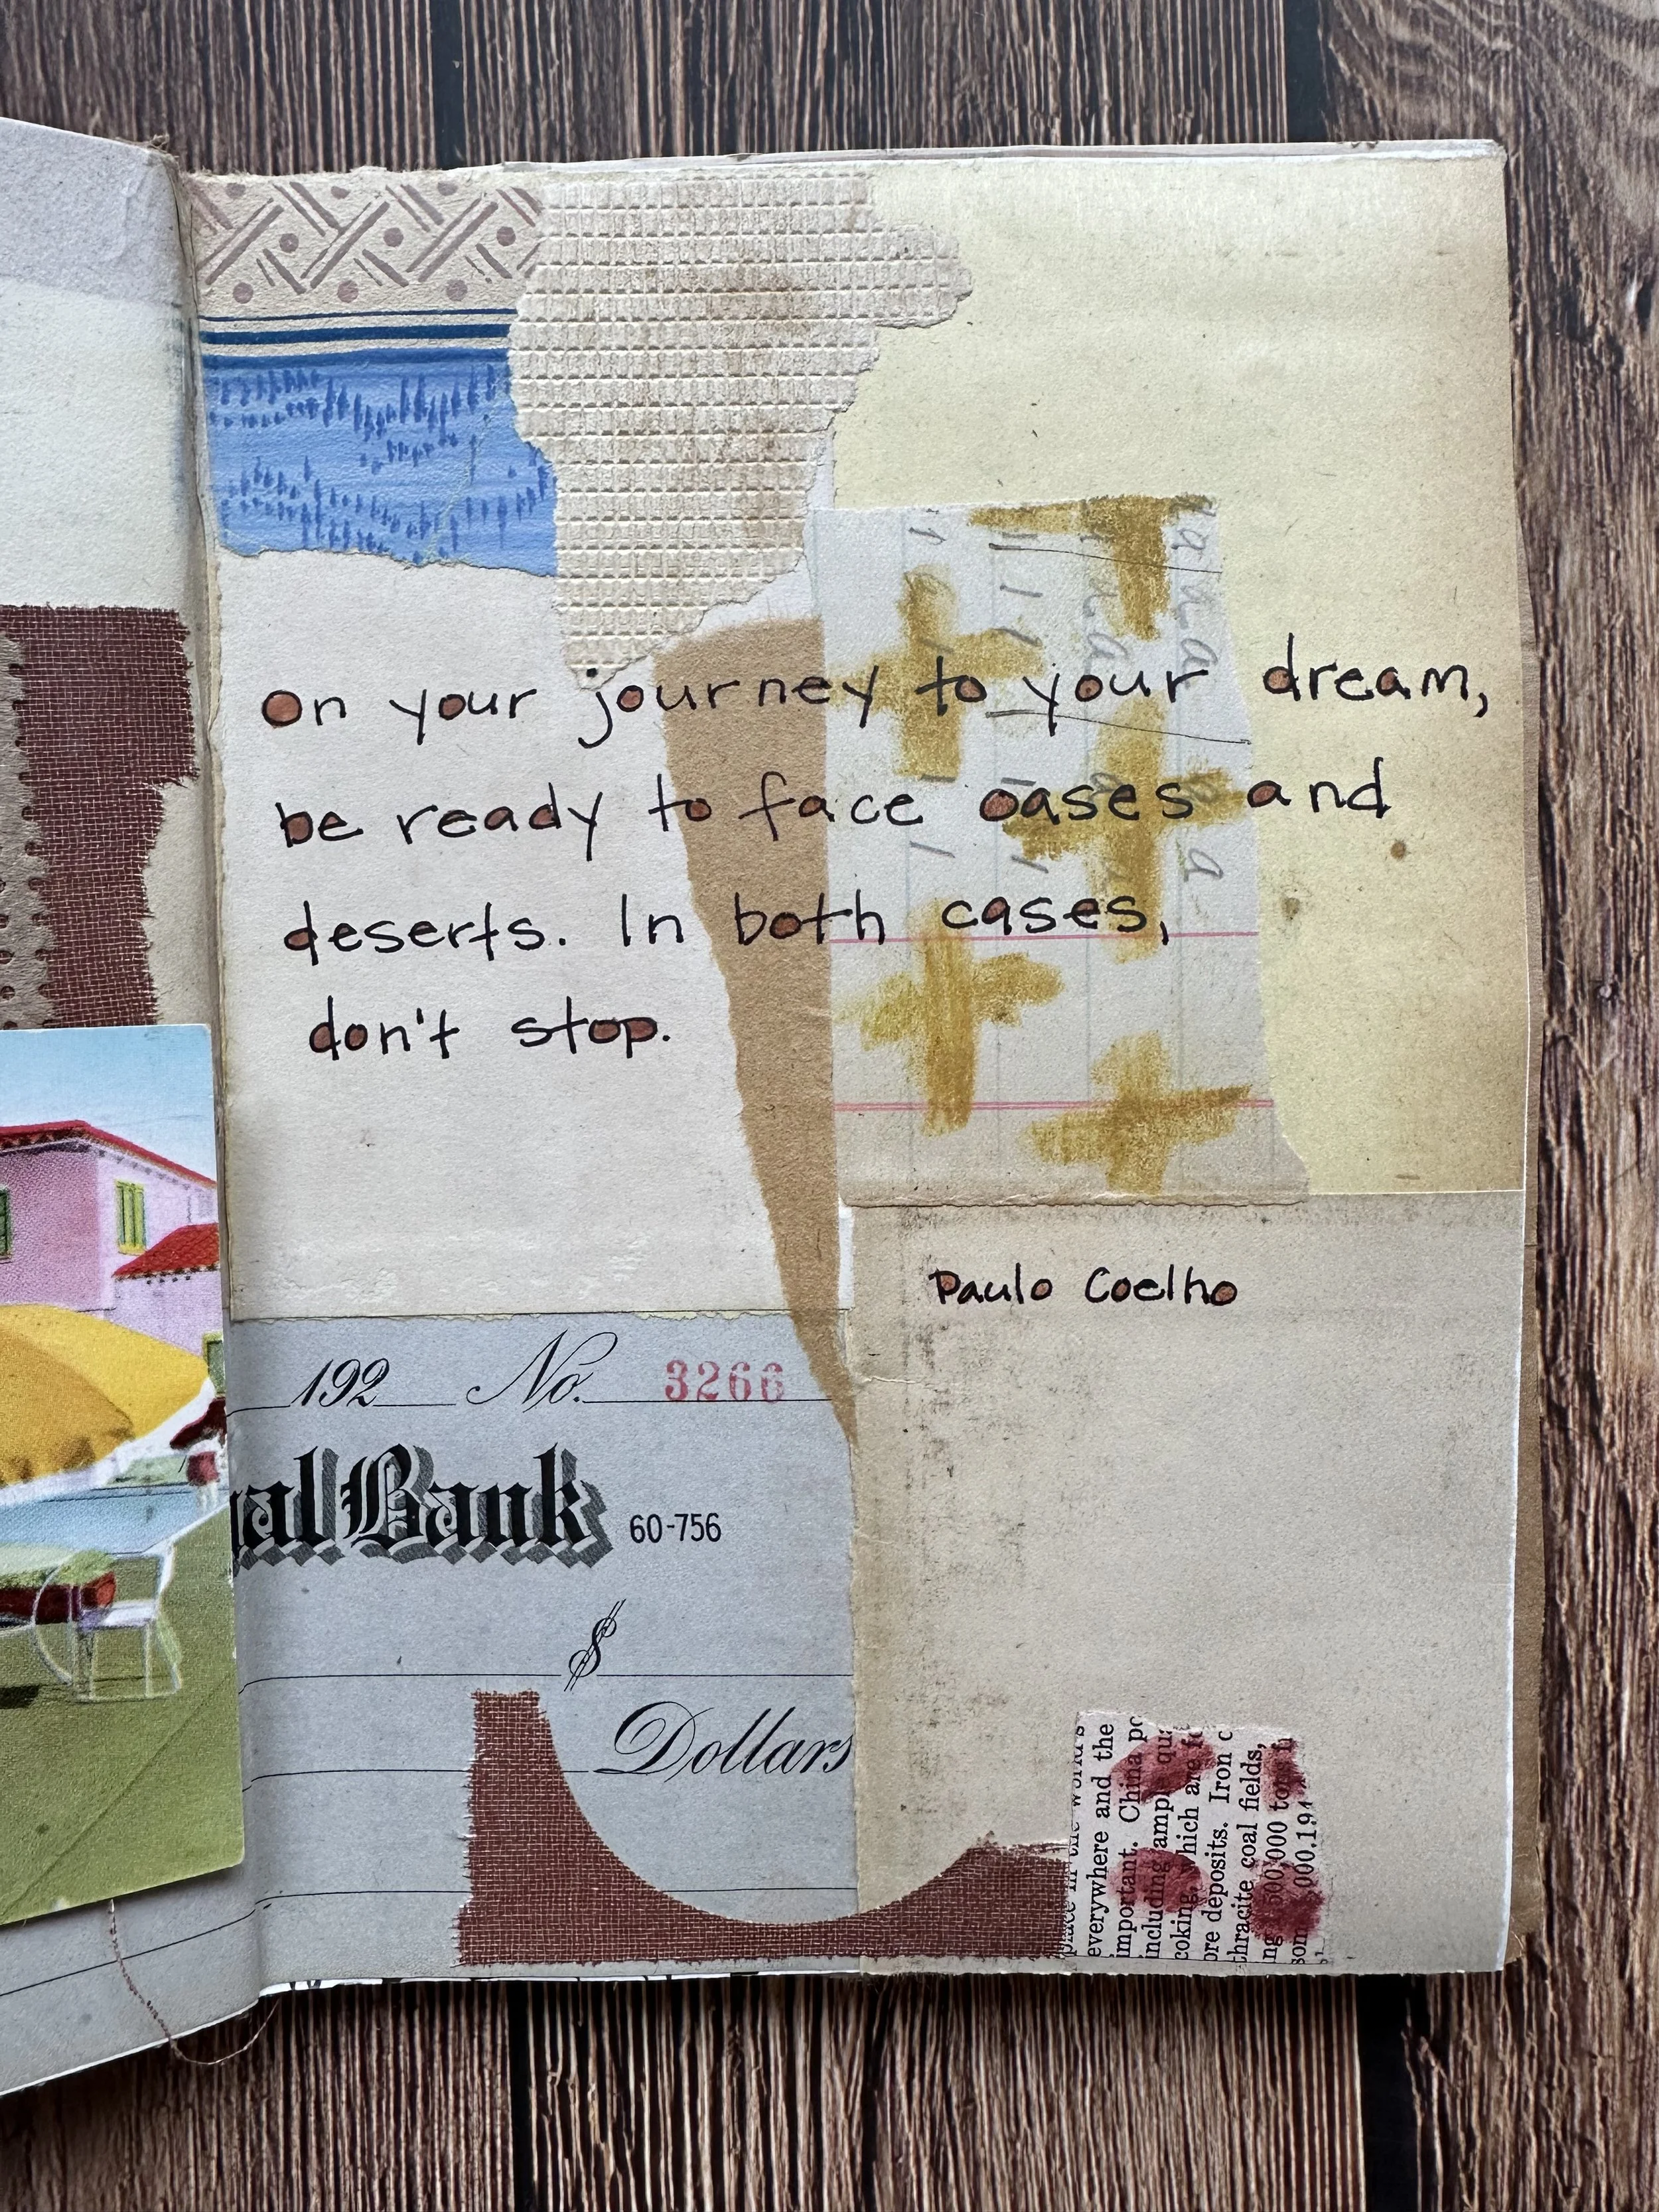 On your journey to your dream,
be ready to face oases and
deserts. In both cases,
don't stop.
Paulo Coelho
192 No. 3266
al Bank 60-756
$
Dollars
everywhere and the
important. China
including
coking, which are
deposits. Iron
coal fields,